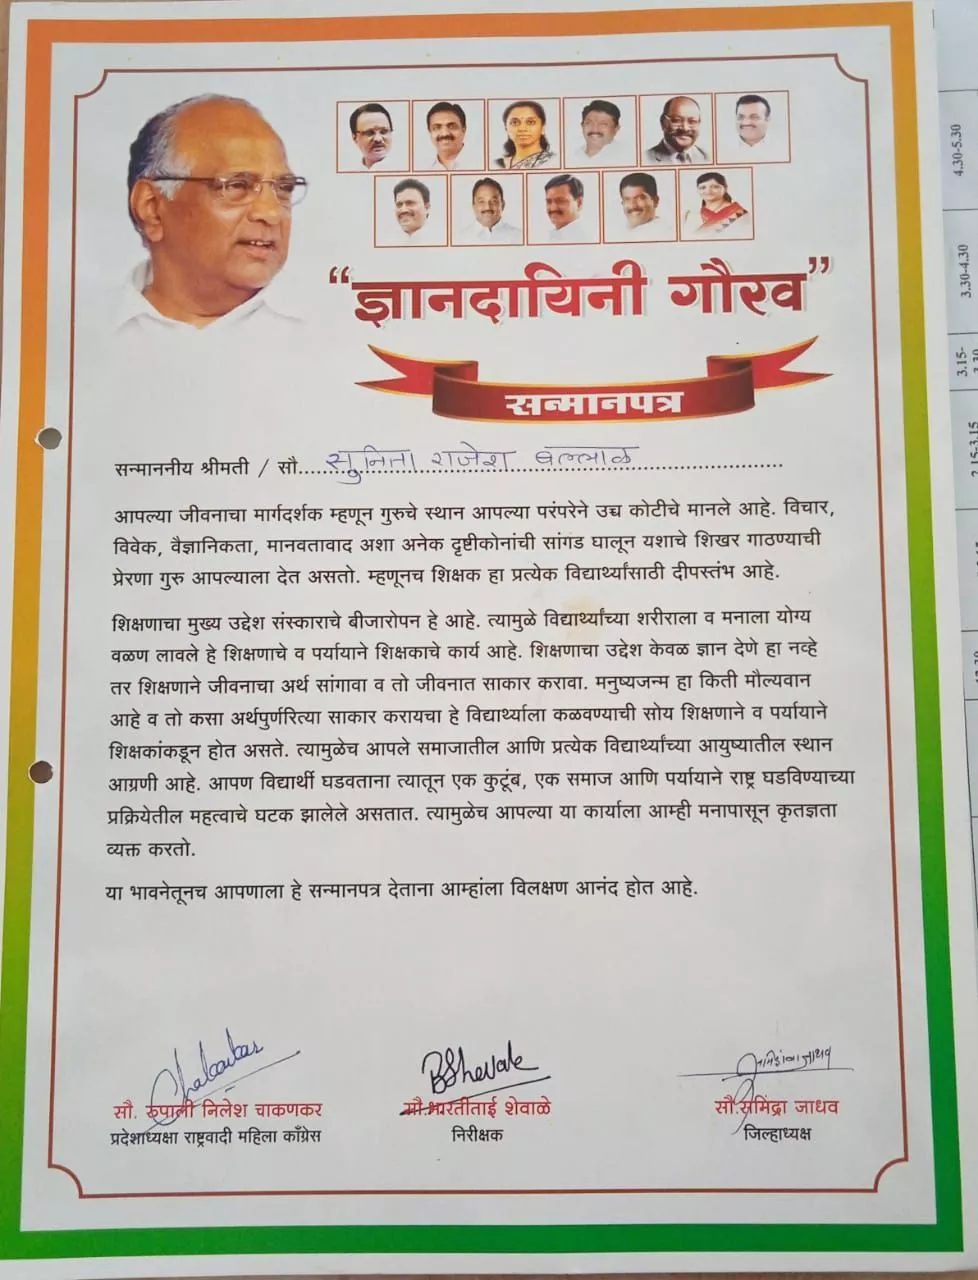 “ज्ञानदायिनी गौरव”
सन्मानपत्र
सन्माननीय श्रीमती / सौ.....सुनिता राजेश बल्लाळ.....
आपल्या जीवनाचा मार्गदर्शक म्हणून गुरुचे स्थान आपल्या परंपरेने उच्च कोटीचे मानले आहे. विचार,
विवेक, वैज्ञानिकता, मानवतावाद अशा अनेक दृष्टीकोनांची सांगड घालून यशाचे शिखर गाठण्याची
प्रेरणा गुरु आपल्याला देत असतो. म्हणूनच शिक्षक हा प्रत्येक विद्यार्थ्यांसाठी दीपस्तंभ आहे.
शिक्षणाचा मुख्य उद्देश संस्काराचे बीजारोपन हे आहे. त्यामुळे विद्यार्थ्यांच्या शरीराला व मनाला योग्य
वळण लावले हे शिक्षणाचे व पर्यायाने शिक्षकाचे कार्य आहे. शिक्षणाचा उद्देश केवळ ज्ञान देणे हा नव्हे
तर शिक्षणाने जीवनाचा अर्थ सांगावा व तो जीवनात साकार करावा. मनुष्यजन्म हा किती मौल्यवान
आहे व तो कसा अर्थपुर्णरित्या साकार करायचा हे विद्यार्थ्याला कळवण्याची सोय शिक्षणाने व पर्यायाने
शिक्षकांकडून होत असते. त्यामुळेच आपले समाजातील आणि प्रत्येक विद्यार्थ्यांच्या आयुष्यातील स्थान
आग्रणी आहे. आपण विद्यार्थी घडवताना त्यातून एक कुटूंब, एक समाज आणि पर्यायाने राष्ट्र घडविण्याच्या
प्रक्रियेतील महत्वाचे घटक झालेले असतात. त्यामुळेच आपल्या या कार्याला आम्ही मनापासून कृतज्ञता
व्यक्त करतो.
या भावनेतूनच आपणाला हे सन्मानपत्र देताना आम्हांला विलक्षण आनंद होत आहे.
Chakankar
BShevale
समिंद्रा जाधव
सौ. रुपाली निलेश चाकणकर
प्रदेशाध्यक्षा राष्ट्रवादी महिला काँग्रेस
सौ.भारतीताई शेवाळे
निरीक्षक
सौ.समिंद्रा जाधव
जिल्हाध्यक्ष
4.30-5.30
3.30-4.30
3.15-
3.30
2.15-3.15